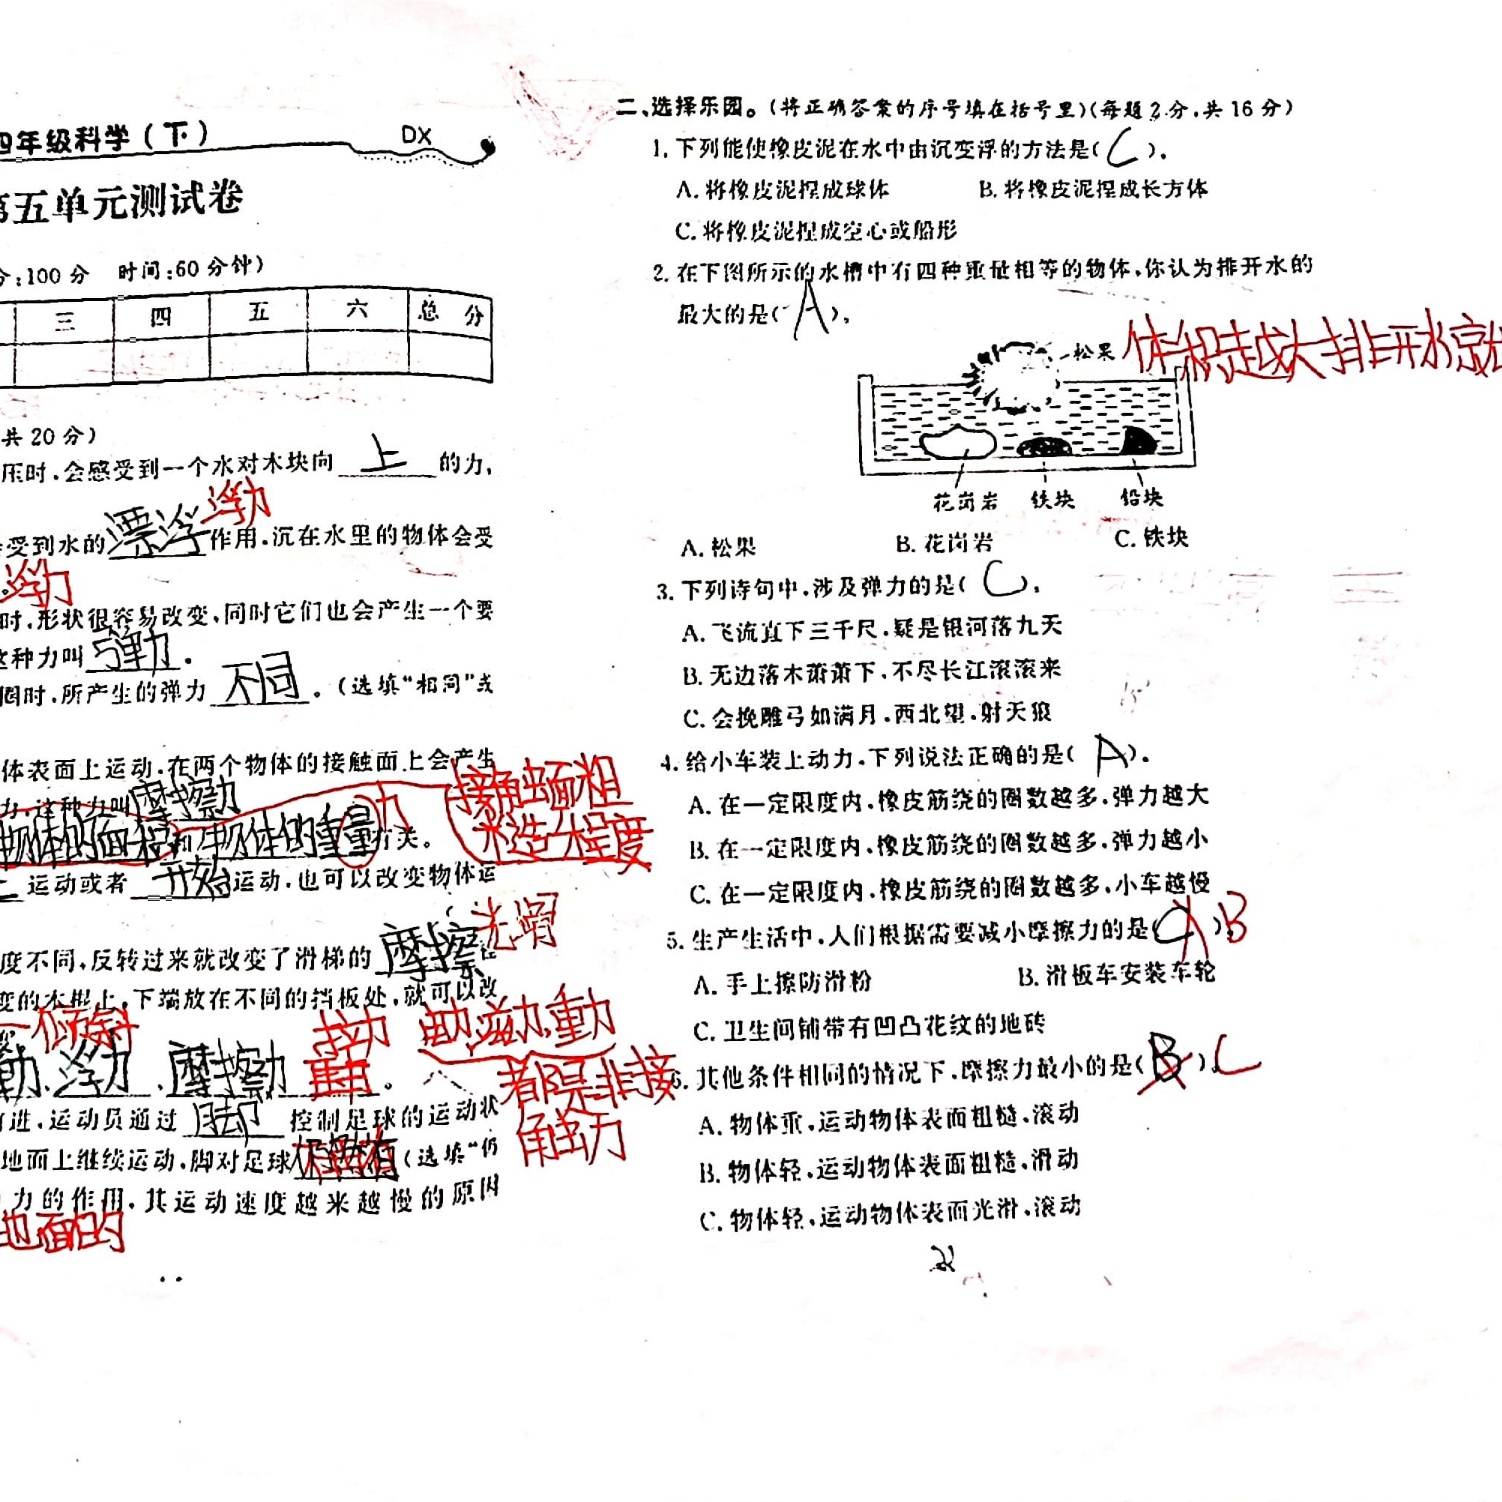 四年级科学(下)
DX
第五单元测试卷
分:100分 时间:60分钟)
三 四 五 六 总分
共20分)
压时,会感受到一个水对木块向 上 的力,
受到水的 漂浮 浮力 作用,沉在水里的物体会受
浮力
时,形状很容易改变,同时它们也会产生一个要
这种力叫 弹力 。
圈时,所产生的弹力 不同 。(选填“相同”或
体表面上运动,在两个物体的接触面上会产生
力,这种力叫 摩擦力
物体的面积 和 物体的重量 力 有关。
接触面粗
糙程度
运动或者 开始 运动,也可以改变物体运
度不同,反转过来就改变了滑梯的 摩擦 光滑
变的木棍上,下端放在不同的挡板处,就可以改
倾斜
浮力、摩擦力
电力,磁力,重力
都是非接
触力
前进,运动员通过 脚 控制足球的运动状
地面上继续运动,脚对足球 没有 (选填“仍
力的作用,其运动速度越来越慢的原因
地面的
二、选择乐园。(将正确答案的序号填在括号里)(每题2分,共16分)
1. 下列能使橡皮泥在水中由沉变浮的方法是( C )。
A. 将橡皮泥捏成球体 B. 将橡皮泥捏成长方体
C. 将橡皮泥捏成空心或船形
2. 在下图所示的水槽中有四种重量相等的物体,你认为排开水的
最大的是( A )。
松果
体积越大排开水就
花岗岩 铁块 铅块
A. 松果 B. 花岗岩 C. 铁块
3. 下列诗句中,涉及弹力的是( C )。
A. 飞流直下三千尺,疑是银河落九天
B. 无边落木萧萧下,不尽长江滚滚来
C. 会挽雕弓如满月,西北望,射天狼
4. 给小车装上动力,下列说法正确的是( A )。
A. 在一定限度内,橡皮筋绕的圈数越多,弹力越大
B. 在一定限度内,橡皮筋绕的圈数越多,弹力越小
C. 在一定限度内,橡皮筋绕的圈数越多,小车越慢
5. 生产生活中,人们根据需要减小摩擦力的是( C ) B
A. 手上擦防滑粉 B. 滑板车安装车轮
C. 卫生间铺带有凹凸花纹的地砖
6. 其他条件相同的情况下,摩擦力最小的是( B )。 C
A. 物体重,运动物体表面粗糙,滚动
B. 物体轻,运动物体表面粗糙,滑动
C. 物体轻,运动物体表面光滑,滚动